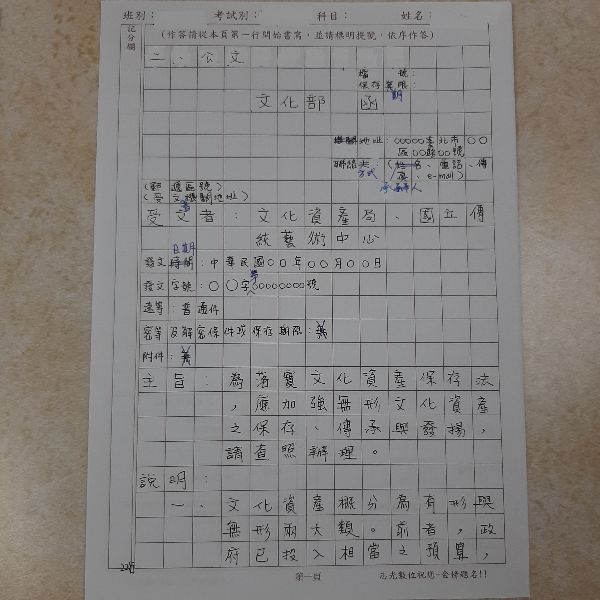 班別： 考試別： 科目： 姓名：
記分欄
（作答請從本頁第一行開始書寫，並請標明提號，依序作答）
二、公文
檔 號：
保存年限：
期
文化部 函
機關地址：○○○○○臺北市○○
區○○路○○號
聯絡方式：（姓名、電話、傳
真、e-mail）
承辦人
（郵遞區號）
（受文機關地址）
受文者：文化資產局、國立傳
統藝術中心
日期
發文時間：中華民國○○年○○月○○日
第
發文字號：○○字○○○○○○○○號
速等：普通件
密等及解密條件或保存期限：
附件：
主旨：為落實文化資產保存法
，應加強無形文化資產
之保存、傳承與發揚，
請查照辦理。
說明：
一、文化資產概分為有形與
無形兩大類。前者，政
府已投入相當之預算，
第一頁
志光數位祝您-金榜題名!!